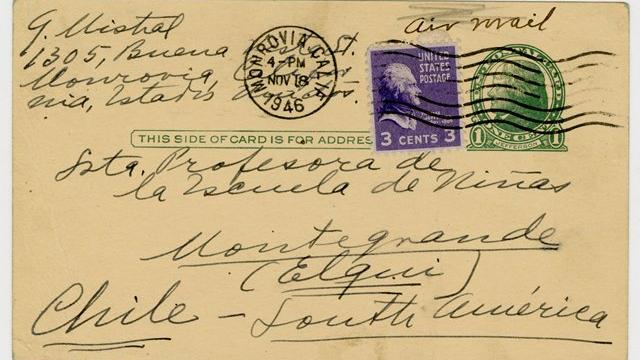 Air mail
G. Mistral
1305, Buena St.
Monrovia,
nia, Estados
MONROVIA, CALIF.
4-PM
NOV 18
1946
UNITED
STATES
POSTAGE
3 CENTS 3
1 JEFFERSON 1
THIS SIDE OF CARD IS FOR ADDRES
Srta. Profesora de
la Escuela de Niñas
Montegrande
(Elqui)
Chile - South América